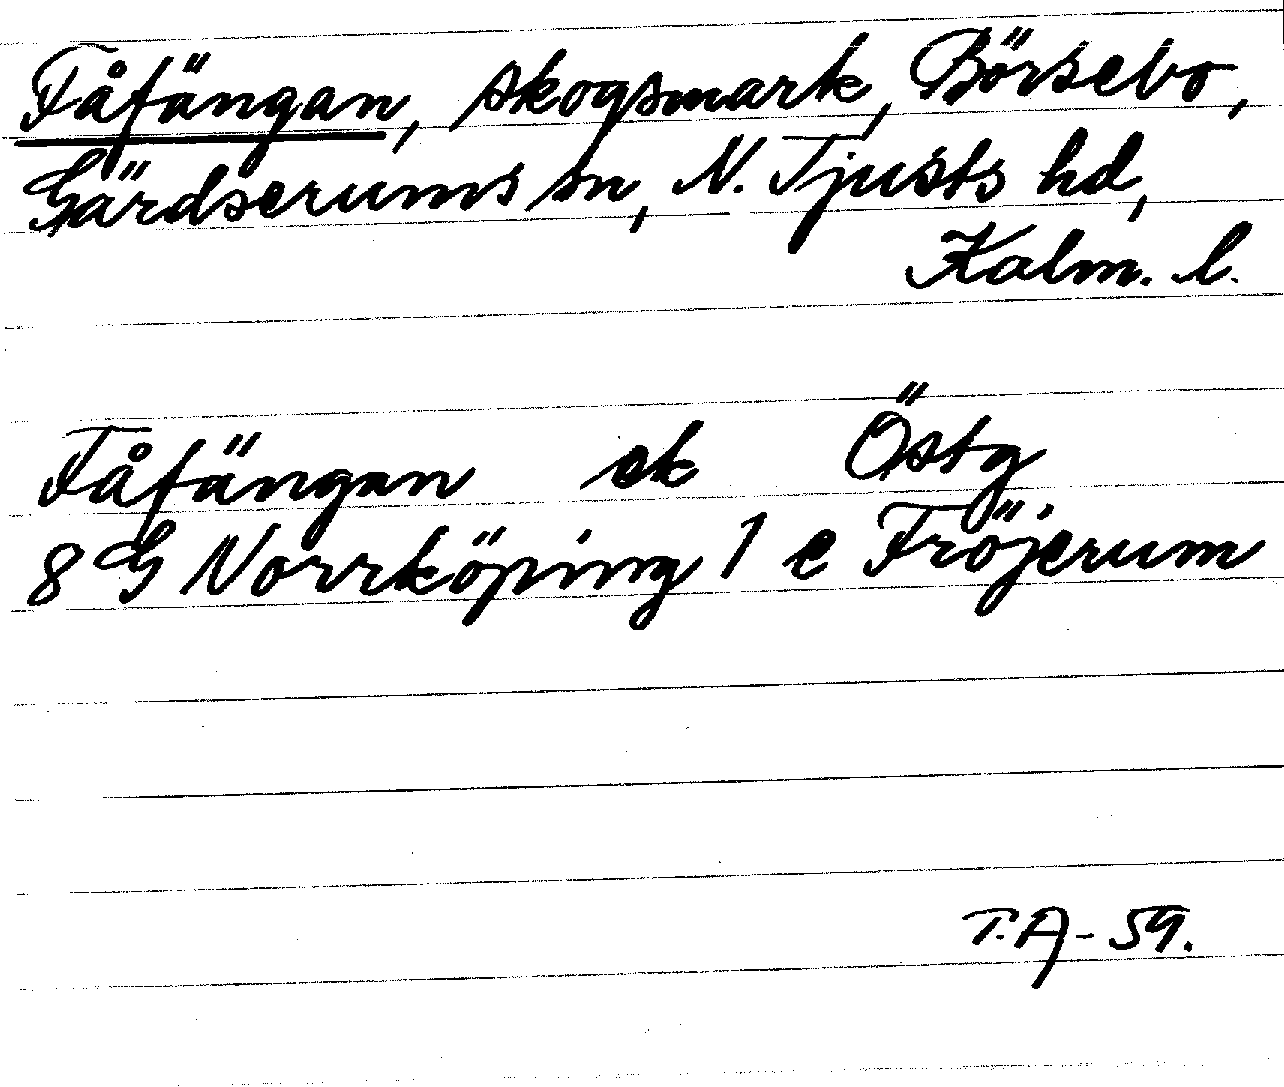 Fåfängan, skogsmark, Börsebo,
Gärdserums sn, N. Tjusts hd,
Kalm. l.
Fåfängan ek Östg
8 G Norrköping 1 e Fröjerum
T.A-59.